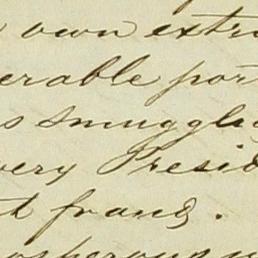 own extr
erable por
s smuggle
very Presid
t fraud.
osperous